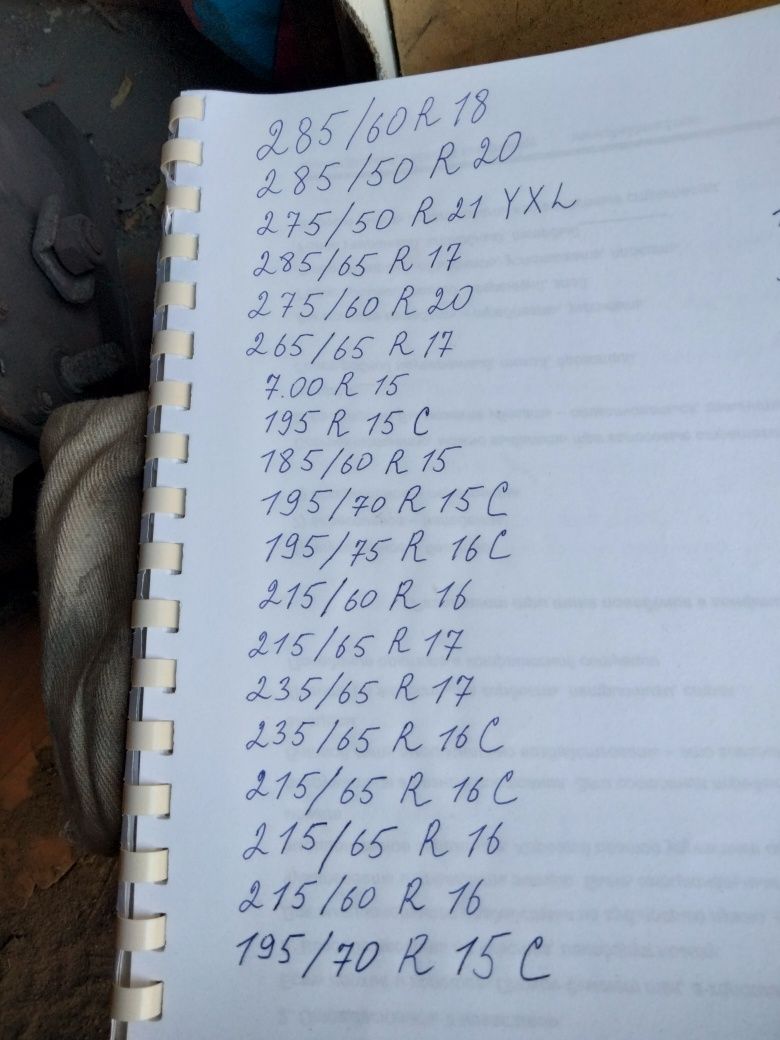 285/60 R 18
285/50 R 20
275/50 R 21 YXL
285/65 R 17
275/60 R 20
265/65 R 17
7.00 R 15
195 R 15 C
185/60 R 15
195/70 R 15 C
195/75 R 16 C
215/60 R 16
215/65 R 17
235/65 R 17
235/65 R 16 C
215/65 R 16 C
215/65 R 16
215/60 R 16
195/70 R 15 C